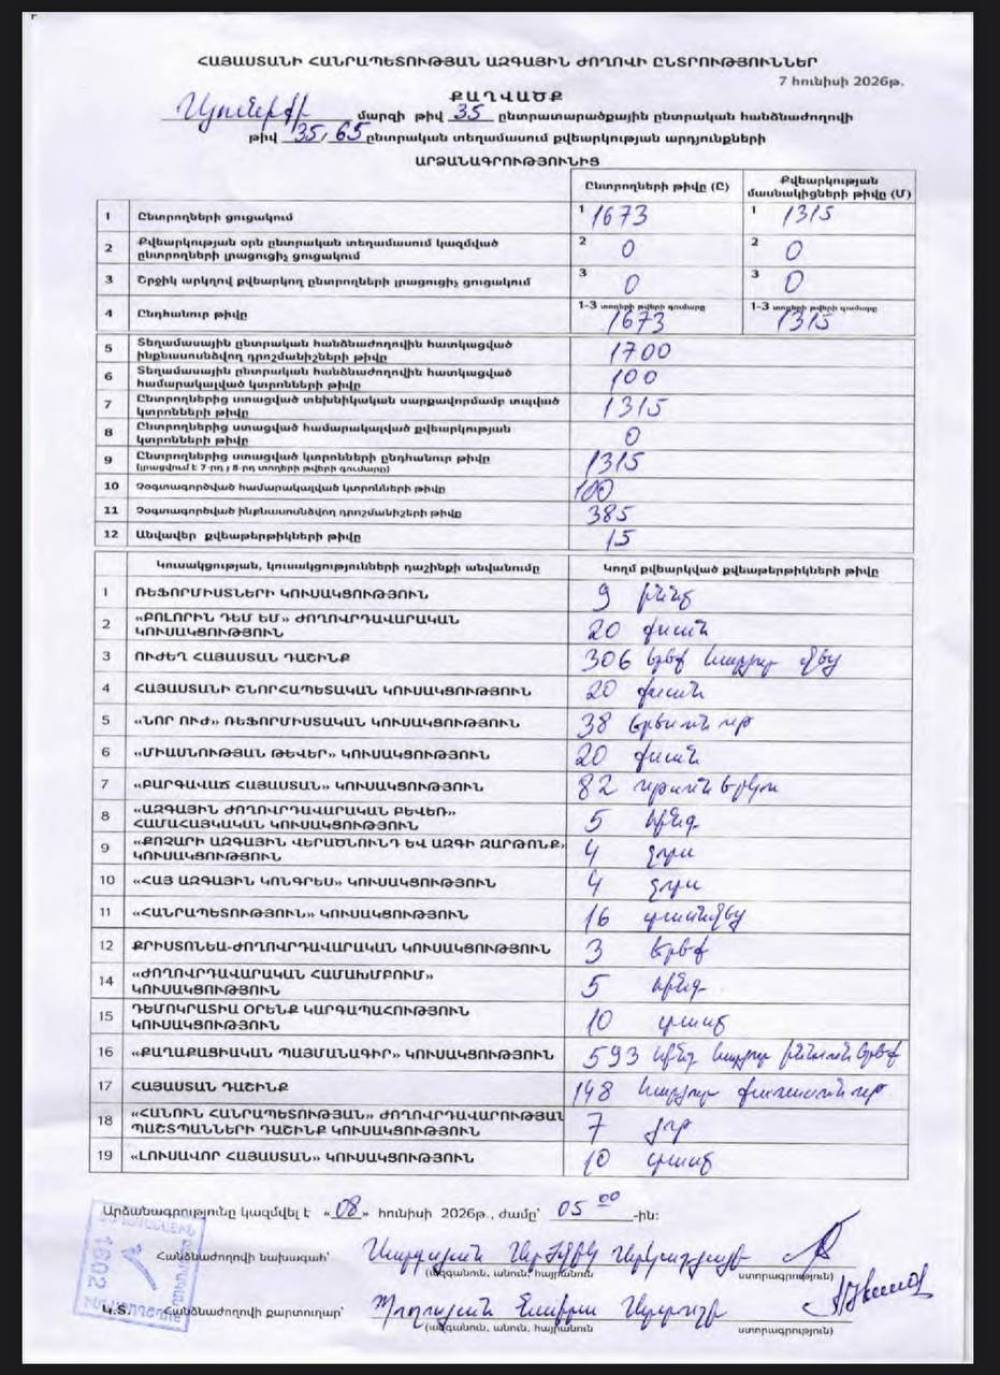 ՀԱՅԱՍՏԱՆԻ ՀԱՆՐԱՊԵՏՈՒԹՅԱՆ ԱԶԳԱՅԻՆ ԺՈՂՈՎԻ ԸՆՏՐՈՒԹՅՈՒՆՆԵՐ
7 հունիսի 2026թ.
ՔԱՂՎԱԾՔ
Սյունիքի մարզի թիվ 35 ընտրատարածքային ընտրական հանձնաժողովի
թիվ 35/65 ընտրական տեղամասում քվեարկության արդյունքների
ԱՐՁԱՆԱԳՐՈՒԹՅՈՒՆԻՑ
Ընտրողների թիվը (Ը) Քվեարկության մասնակիցների թիվը (Մ)
1 Ընտրողների ցուցակում 1 1673 1 1315
2 Քվեարկության օրն ընտրական տեղամասում կազմված
ընտրողների լրացուցիչ ցուցակում 2 0 2 0
3 Շրջիկ արկղով քվեարկող ընտրողների լրացուցիչ ցուցակում 3 0 3 0
4 Ընդհանուր թիվը 1-3 տողերի թվերի գումարը 1673 1-3 տողերի թվերի գումարը 1315
5 Տեղամասային ընտրական հանձնաժողովին հատկացված
ինքնասոսնձվող դրոշմանիշների թիվը 1700
6 Տեղամասային ընտրական հանձնաժողովին հատկացված
համարակալված կտրոնների թիվը 100
7 Ընտրողներից ստացված տեխնիկական սարքավորմամբ տպված
կտրոնների թիվը 1315
8 Ընտրողներից ստացված համարակալված քվեարկության
կտրոնների թիվը 0
9 Ընտրողներից ստացված կտրոնների ընդհանուր թիվը 1315
(լրացվում է 7-րդ և 8-րդ տողերի թվերի գումարը)
10 Չօգտագործված համարակալված կտրոնների թիվը 100
11 Չօգտագործված ինքնասոսնձվող դրոշմանիշերի թիվը 385
12 Անվավեր քվեաթերթիկների թիվը 15
Կուսակցության, կուսակցությունների դաշինքի անվանումը Կողմ քվեարկված քվեաթերթիկների թիվը
1 ՌԵՖՈՐՄԻՍՏՆԵՐԻ ԿՈՒՍԱԿՑՈՒԹՅՈՒՆ 9 ինը
2 «ԲՈԼՈՐԻՆ ԴԵՄ ԵՄ» ԺՈՂՈՎՐԴԱՎԱՐԱԿԱՆ
ԿՈՒՍԱԿՑՈՒԹՅՈՒՆ 20 քսան
3 ՈՒԺԵՂ ՀԱՅԱՍՏԱՆ ԴԱՇԻՆՔ 306 երեք հարյուր վեց
4 ՀԱՅԱՍՏԱՆԻ ՇՆՈՐՀԱՊԵՏԱԿԱՆ ԿՈՒՍԱԿՑՈՒԹՅՈՒՆ 20 քսան
5 «ՆՈՐ ՈՒԺ» ՌԵՖՈՐՄԻՍՏԱԿԱՆ ԿՈՒՍԱԿՑՈՒԹՅՈՒՆ 38 երեսուն ութ
6 «ՄԻԱՍՆՈՒԹՅԱՆ ԹԵՎԵՐ» ԿՈՒՍԱԿՑՈՒԹՅՈՒՆ 20 քսան
7 «ԲԱՐԳԱՎԱՃ ՀԱՅԱՍՏԱՆ» ԿՈՒՍԱԿՑՈՒԹՅՈՒՆ 82 ութսուն երկու
8 «ԱԶԳԱՅԻՆ ԺՈՂՈՎՐԴԱՎԱՐԱԿԱՆ ԲԵՎԵՌ»
ՀԱՄԱՀԱՅԿԱԿԱՆ ԿՈՒՍԱԿՑՈՒԹՅՈՒՆ 5 հինգ
9 «ՔՈՉԱՐԻ ԱԶԳԱՅԻՆ ՎԵՐԱԾՆՈՒՆԴ ԵՎ ԱԶԳԻ ԶԱՐԹՈՆՔ»
ԿՈՒՍԱԿՑՈՒԹՅՈՒՆ 4 չորս
10 «ՀԱՅ ԱԶԳԱՅԻՆ ԿՈՆԳՐԵՍ» ԿՈՒՍԱԿՑՈՒԹՅՈՒՆ 4 չորս
11 «ՀԱՆՐԱՊԵՏՈՒԹՅՈՒՆ» ԿՈՒՍԱԿՑՈՒԹՅՈՒՆ 16 տասնվեց
12 ՔՐԻՍՏՈՆԵԱ-ԺՈՂՈՎՐԴԱՎԱՐԱԿԱՆ ԿՈՒՍԱԿՑՈՒԹՅՈՒՆ 3 երեք
14 «ԺՈՂՈՎՐԴԱՎԱՐԱԿԱՆ ՀԱՄԱԽՄԲՈՒՄ»
ԿՈՒՍԱԿՑՈՒԹՅՈՒՆ 5 հինգ
15 ԴԵՄՈԿՐԱՏԻԱ ՕՐԵՆՔ ԿԱՐԳԱՊԱՀՈՒԹՅՈՒՆ
ԿՈՒՍԱԿՑՈՒԹՅՈՒՆ 10 տասը
16 «ՔԱՂԱՔԱՑԻԱԿԱՆ ՊԱՅՄԱՆԱԳԻՐ» ԿՈՒՍԱԿՑՈՒԹՅՈՒՆ 593 հինգ հարյուր իննսուն երեք
17 ՀԱՅԱՍՏԱՆ ԴԱՇԻՆՔ 148 հարյուր քառասուն ութ
18 «ՀԱՆՈՒՆ ՀԱՆՐԱՊԵՏՈՒԹՅԱՆ» ԺՈՂՈՎՐԴԱՎԱՐՈՒԹՅԱՆ
ՊԱՇՏՊԱՆՆԵՐԻ ԴԱՇԻՆՔ ԿՈՒՍԱԿՑՈՒԹՅՈՒՆ 7 յոթ
19 «ԼՈՒՍԱՎՈՐ ՀԱՅԱՍՏԱՆ» ԿՈՒՍԱԿՑՈՒԹՅՈՒՆ 10 տասը
Արձանագրությունը կազմվել է «08» հունիսի 2026թ., ժամը՝ 05 00-ին:
Հանձնաժողովի նախագահ՝
(ազգանուն, անուն, հայրանուն ստորագրություն)
Կ.Տ. Հանձնաժողովի քարտուղար՝
(ազգանուն, անուն, հայրանուն ստորագրություն)
1602